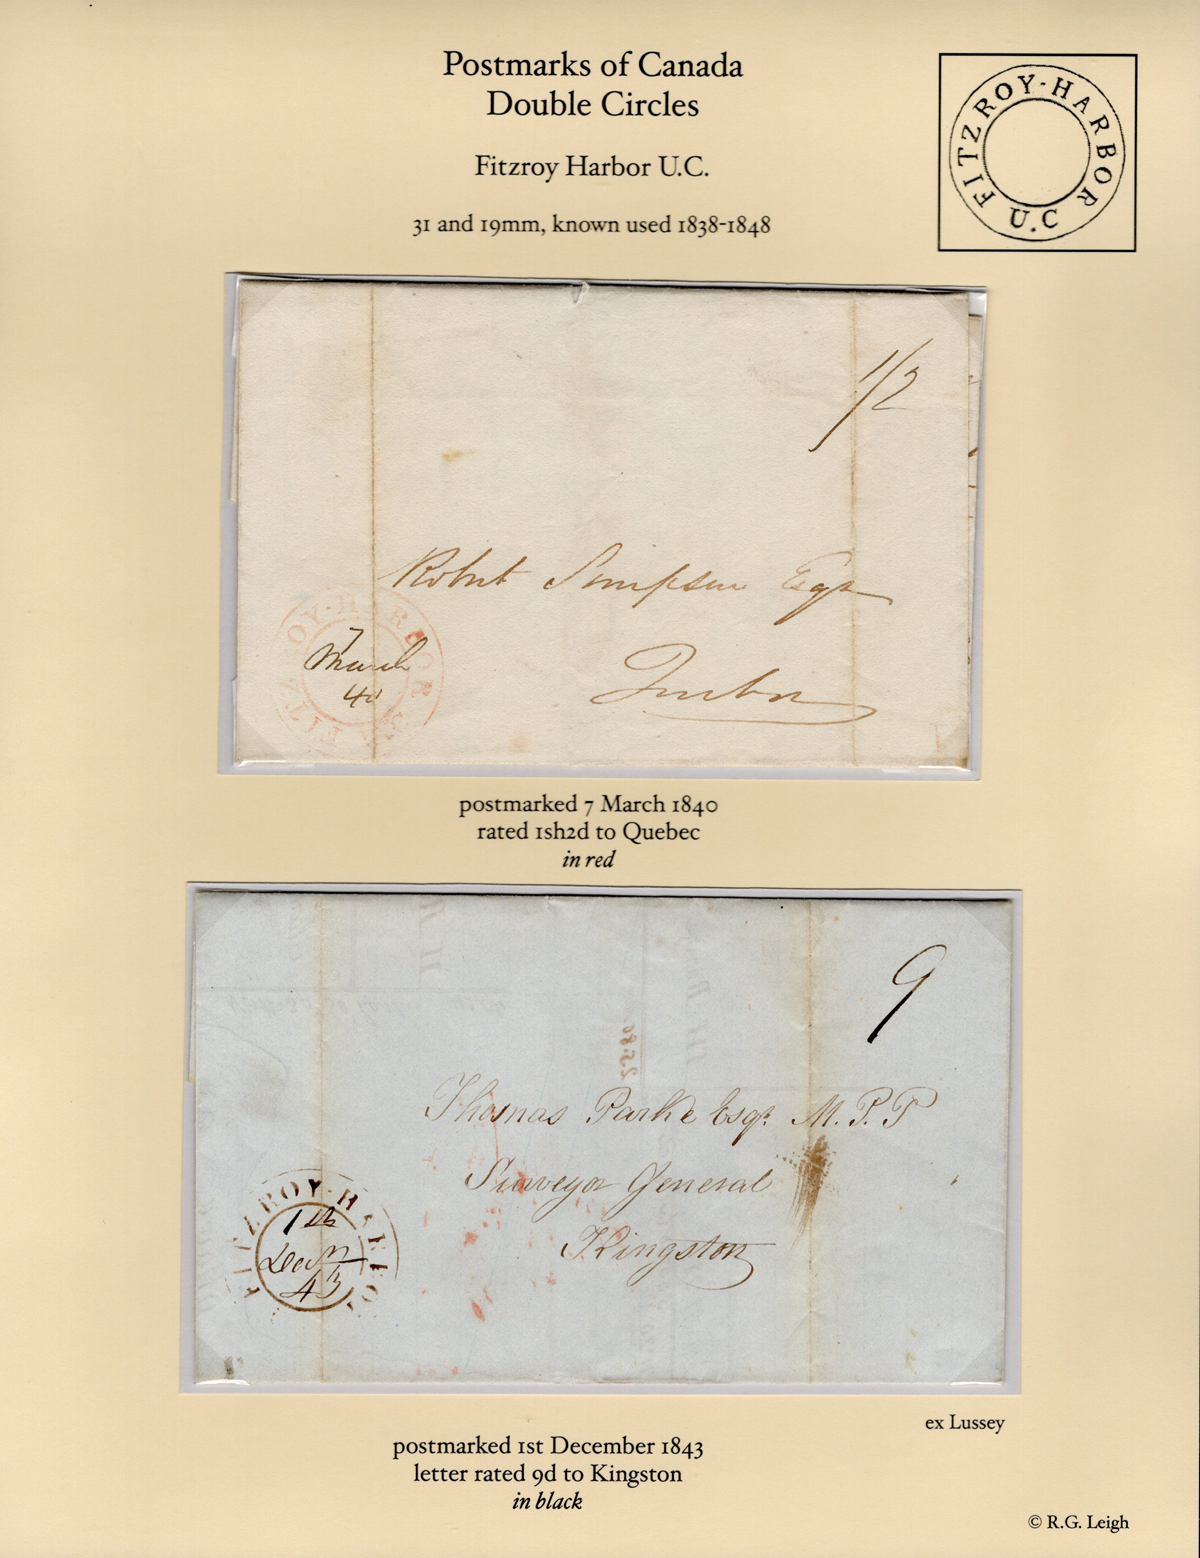 Postmarks of Canada
Double Circles
Fitzroy Harbor U.C.
31 and 19mm, known used 1838-1848
FITZROY-HARBOR
U.C
1/2
Robert Simpson Esqr
Quebec
FITZROY-HARBOR
7
March
40
postmarked 7 March 1840
rated 1sh2d to Quebec
in red
9
2.5.80
Thomas Parke Esqr. M.P.P
Surveyor General
Kingston
FITZROY-HARBO
1st
Decm
43
ex Lussey
postmarked 1st December 1843
letter rated 9d to Kingston
in black
© R.G. Leigh